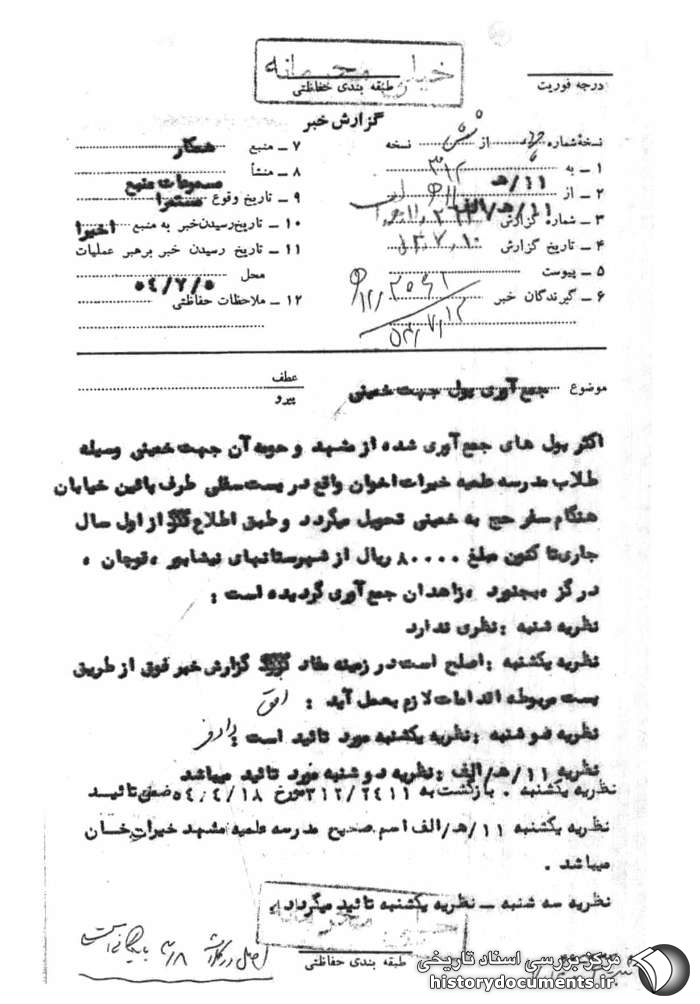 خیلی محرمانه
طبقه بندی حفاظتی
درجه فوریت
گزارش خبر
نسخهٔ شماره از نسخه
۱ ـ به ۳۱۲
۲ ـ از ۱۱/هـ
۳ ـ شماره گزارش ۱۱/هـ/الف
۴ ـ تاریخ گزارش
۵ ـ پیوست
۶ ـ گیرندگان خبر
۷ ـ منبع همکار
۸ ـ منشأ مسموعات منبع
۹ ـ تاریخ وقوع مستمرا
۱۰ ـ تاریخ رسیدن خبر به منبع اخیرا
۱۱ ـ تاریخ رسیدن خبر برهبر عملیات
محل ۵۴/۷/۵
۱۲ ـ ملاحظات حفاظتی
موضوع جمع آوری پول جهت خمینی
عطف
پیرو
اکثر پول های جمع آوری شده از مشهد و حومه آن جهت خمینی وسیله
طلاب مدرسه علمیه خیرات اخوان واقع در بست سفلی طرف پائین خیابان
هنگام سفر حج به خمینی تحویل میگردد و طبق اطلاع از اول سال
جاری تا کنون مبلغ ۸۰۰۰۰ ریال از شهرستانهای نیشابور ، قوچان ،
در گز ، بجنورد ، زاهدان جمع آوری گردیده است :
نظریه شنبه : نظری ندارد
نظریه یکشنبه : اصلح است در زمینه مفاد گزارش خبر فوق از طریق
بست مربوطه اقدامات لازم بعمل آید : افق
نظریه دوشنبه : نظریه یکشنبه مورد تائید است :
نظریه ۱۱/هـ/الف : نظریه دوشنبه مورد تائید میباشد
نظریه یکشنبه . بازگشت به ۳۱۲/۲۴۱۱ مورخ ۵۴/۴/۱۸ ضمن تائیـد
نظریه یکشنبه ۱۱/هـ/الف اسم صحیح مدرسه علمیه مشهد خیرات خـان
میباشد .
نظریه سه شنبه ــ نظریه یکشنبه تائید میگردد .
خیلی محرمانه
طبقه بندی حفاظتی
مرکز بررسی اسناد تاریخی
historydocuments.ir